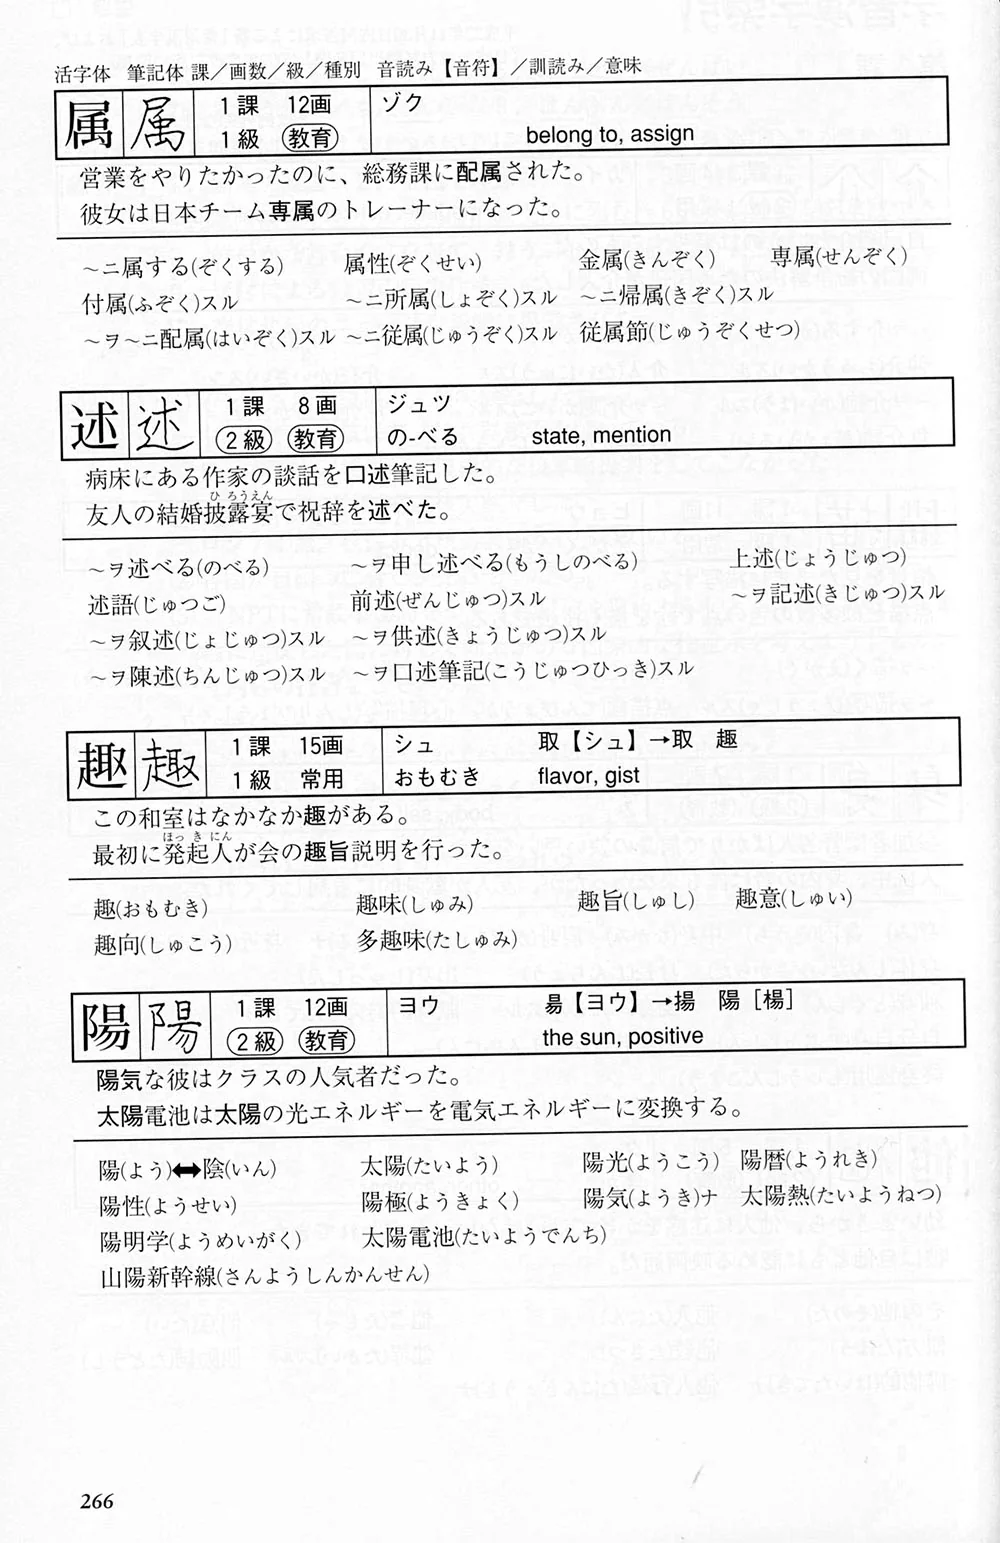 活字体 筆記体 課／画数／級／種別 音読み【音符】／訓読み／意味
属 属 1課 12画 ゾク
1級 教育 belong to, assign
営業をやりたかったのに、総務課に配属された。
彼女は日本チーム専属のトレーナーになった。
～ニ属する(ぞくする) 属性(ぞくせい) 金属(きんぞく) 専属(せんぞく)
付属(ふぞく)スル ～ニ所属(しょぞく)スル ～ニ帰属(きぞく)スル
～ヲ～ニ配属(はいぞく)スル ～ニ従属(じゅうぞく)スル 従属節(じゅうぞくせつ)
述 述 1課 8画 ジュツ
2級 教育 の-べる state, mention
病床にある作家の談話を口述筆記した。
ひろうえん
友人の結婚披露宴で祝辞を述べた。
～ヲ述べる(のべる) ～ヲ申し述べる(もうしのべる) 上述(じょうじゅつ)
述語(じゅつご) 前述(ぜんじゅつ)スル ～ヲ記述(きじゅつ)スル
～ヲ叙述(じょじゅつ)スル ～ヲ供述(きょうじゅつ)スル
～ヲ陳述(ちんじゅつ)スル ～ヲ口述筆記(こうじゅつひっき)スル
趣 趣 1課 15画 シュ 取【シュ】→取 趣
1級 常用 おもむき flavor, gist
この和室はなかなか趣がある。
ほっきにん
最初に発起人が会の趣旨説明を行った。
趣(おもむき) 趣味(しゅみ) 趣旨(しゅし) 趣意(しゅい)
趣向(しゅこう) 多趣味(たしゅみ)
陽 陽 1課 12画 ヨウ 昜【ヨウ】→揚 陽［楊］
2級 教育 the sun, positive
陽気な彼はクラスの人気者だった。
太陽電池は太陽の光エネルギーを電気エネルギーに変換する。
陽(よう)⬌陰(いん) 太陽(たいよう) 陽光(ようこう) 陽暦(ようれき)
陽性(ようせい) 陽極(ようきょく) 陽気(ようき)ナ 太陽熱(たいようねつ)
陽明学(ようめいがく) 太陽電池(たいようでんち)
山陽新幹線(さんようしんかんせん)
266